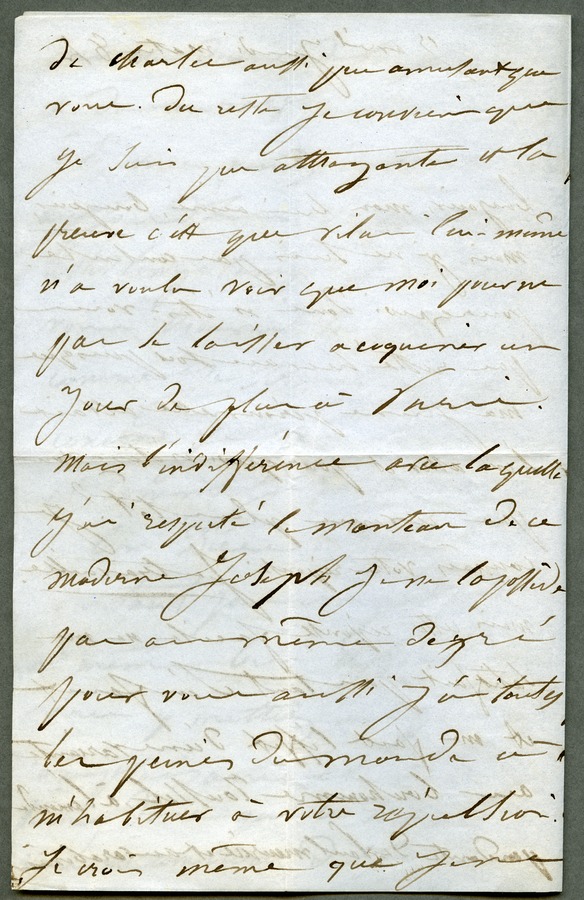 de charlie aussi peu amusant que
vous. Du reste je conviens que
je suis peu attrayante et la
preuve c'est que             lui-même
n'a voulu voir que moi pour ne
pas se laisser acoquiner un
jour de plus à
mais l'indifférence avec laquelle
j'ai respecté le manteau de ce
moderne Joseph je ne la possède
pas au même degré
pour vous aussi j'ai toutes
les peines du monde à
m'habituer à votre répulsion.
Je crois même que je ne